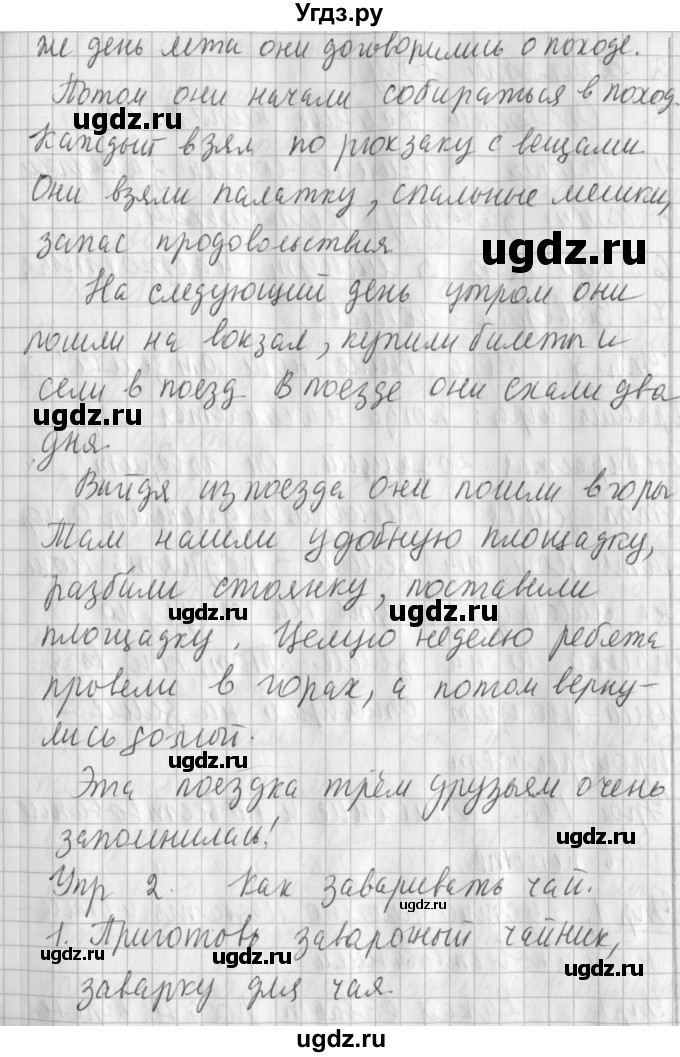 Угдз.ру
же день лета они договорились о походе.
Потом они начали собираться в поход.
Каждый взял по рюкзаку с вещами.
Они взяли палатку, спальные мешки,
запас продовольствия
На следующий день утром они
пошли на вокзал, купили билеты и
сели в поезд В поезде они ехали два
дня.
Выйдя из поезда они пошли в горы
Там нашли удобную площадку,
разбили стоянку, поставили
площадку. Целую неделю ребята
провели в горах, а потом верну-
лись домой.
Эта поездка трём друзьям очень
запомнилась!
Упр 2. Как заваривать чай.
1. Приготовь заварочный чайник,
заварку для чая.
ugdz.ru
ugdz.ru
ugdz.ru
ugdz.ru
ugdz.ru
ugdz.ru
ugdz.ru
ugdz.ru
ugdz.ru
ugdz.ru
ugdz.ru
ugdz.ru